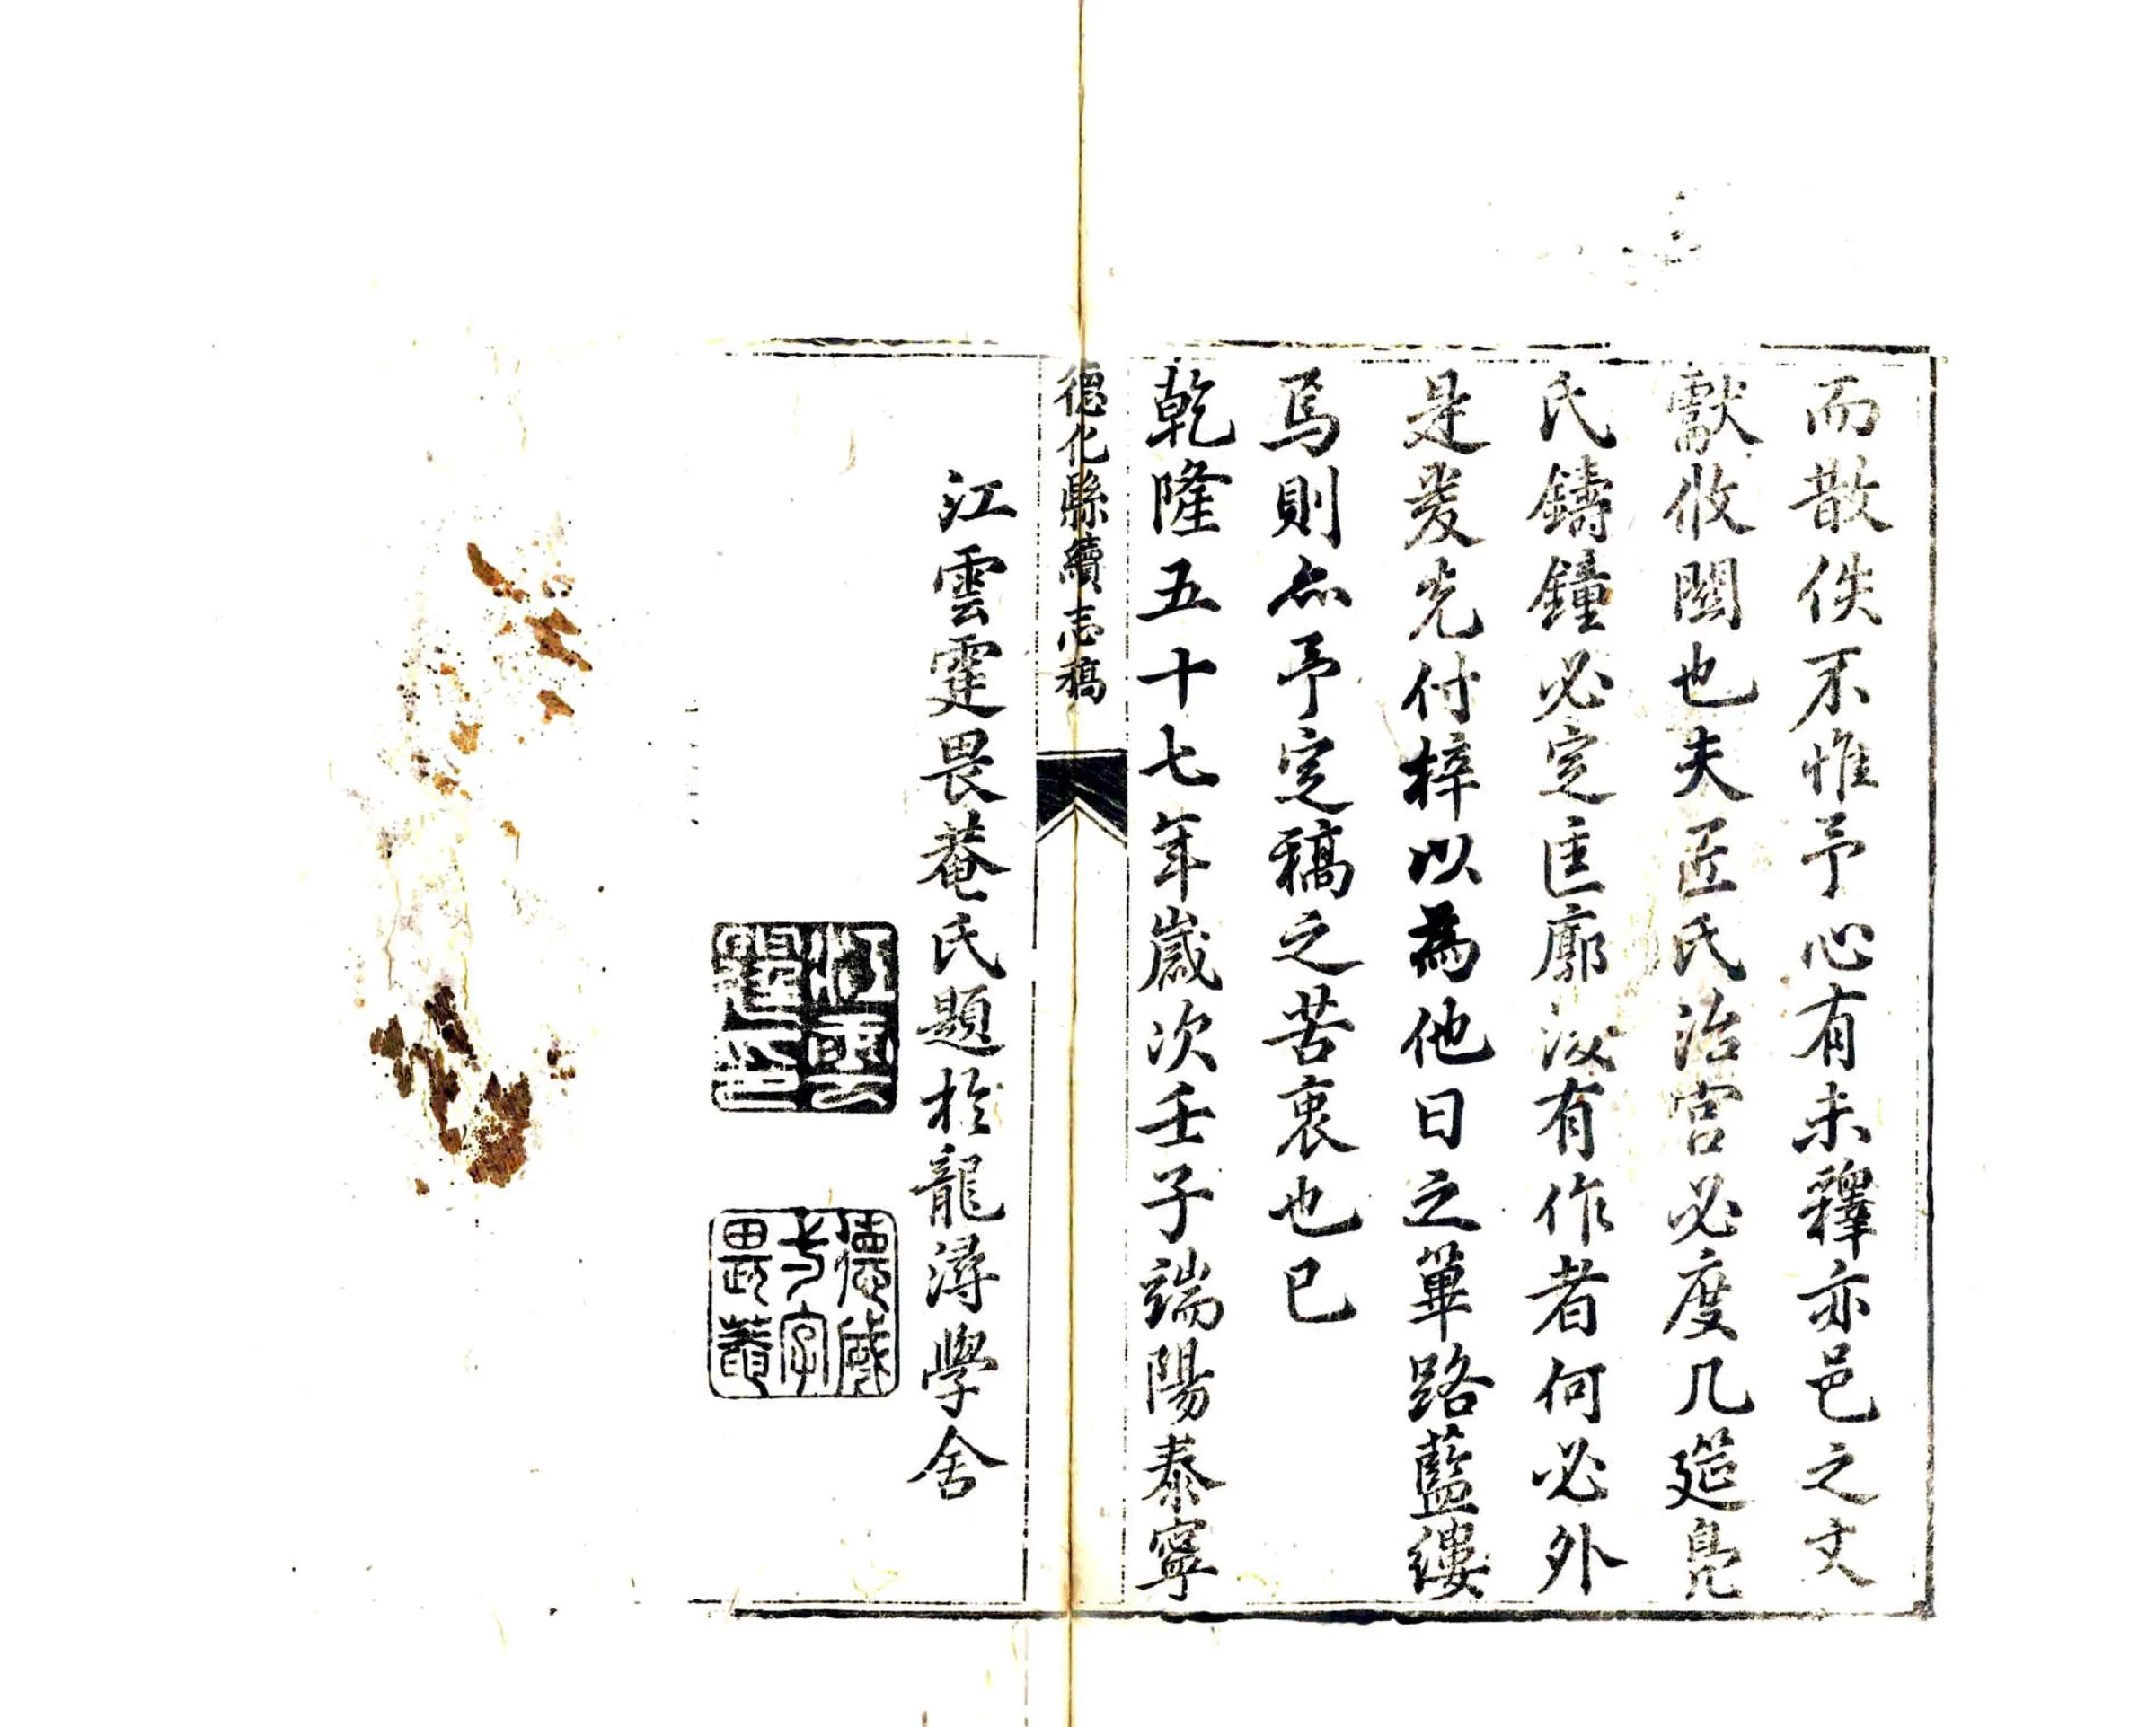 而散佚不惟予心有未釋亦邑之文
獻攸關也夫匠氏治宫必度几筵鳧
氏鑄鐘必定匡廓後有作者何必外
是爰先付梓以為他日之篳路藍縷
焉則亦予定稿之苦衷也已
乾隆五十七年歲次壬子端陽泰寧
德化縣續志稿
江雲霆畏菴氏題於龍潯學舍
江雲霆印
德威字畏菴